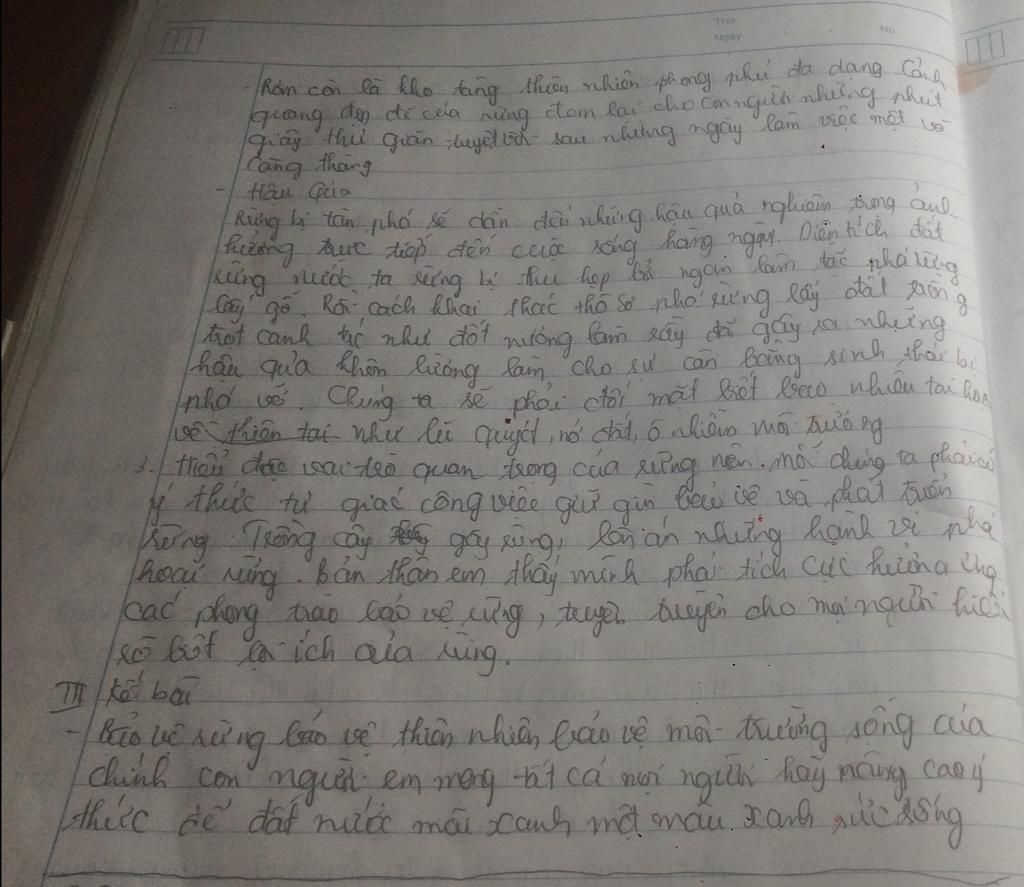 Thứ
Ngày
No.
- Rừng còn là kho tàng thiên nhiên phong phú đa dạng Cảnh
quang đẹp đẽ của rừng đem lại cho con người những phút
giây thư giãn tuyệt vời sau những ngày làm việc mệt và
Căng thẳng
- Hậu Quả
Rừng bị tàn phá sẽ dẫn đến những hậu quả nghiêm trọng ảnh
hưởng trực tiếp đến cuộc sống hàng ngày. Diện tích đất
rừng nước ta rừng bị thu hẹp bởi ngạn lâm tặc phá rừng
lấy gỗ. Rồi cách khai thác thô sơ phá rừng lấy đất trồng
trọt canh tác như đốt nương làm rẫy đã gây ra những
hậu quả khôn lường làm cho sự cân bằng sinh thái bị
phá vỡ. Chúng ta sẽ phải đối mặt biết bao nhiêu tai họa
về thiên tai như lũ quyét, nở đất, ô nhiễm môi trường
3. Hiểu được vai trò quan trọng của rừng nên mỗi chúng ta phải có
ý thức tự giác công việc giữ gìn bảo vệ và phát triển
Rừng. Trồng cây gây rừng, lên án những hành vi phá
hoại rừng. Bản thân em thấy mình phải tích cực hưởng ứng
các phong trào bảo vệ rừng, tuyên truyền cho mọi người hiểu
rõ biết lợi ích của rừng.
III Kết bài
- Bảo vệ rừng bảo vệ thiên nhiên bảo vệ môi trường sống của
chính con người em mong tất cả mọi người hãy nâng cao ý
thức để đất nước mãi xanh một màu xanh sức sống